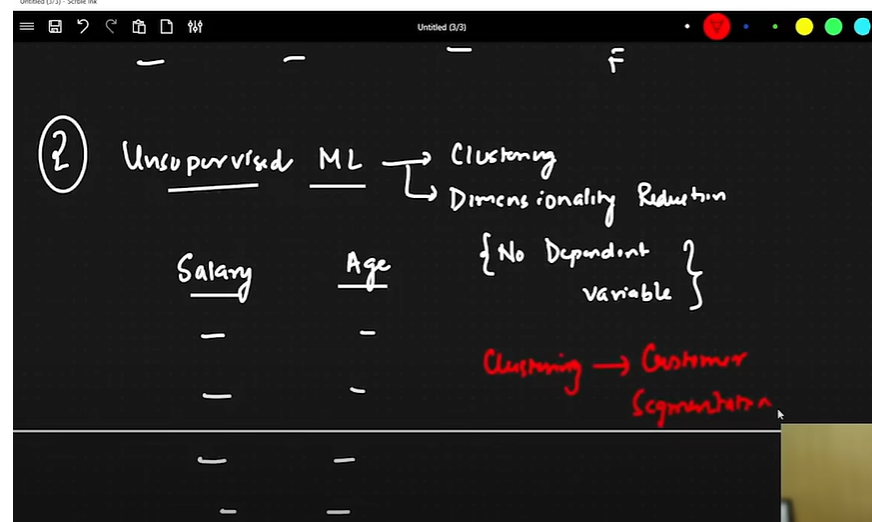 Untitled (3/3) - Scrble Ink
Untitled (3/3)
F
2 Unsupervised ML → Clustering
→ Dimensionality Reduction
Salary Age { No Dependent
variable }
Clustering → Customer
Segmentation